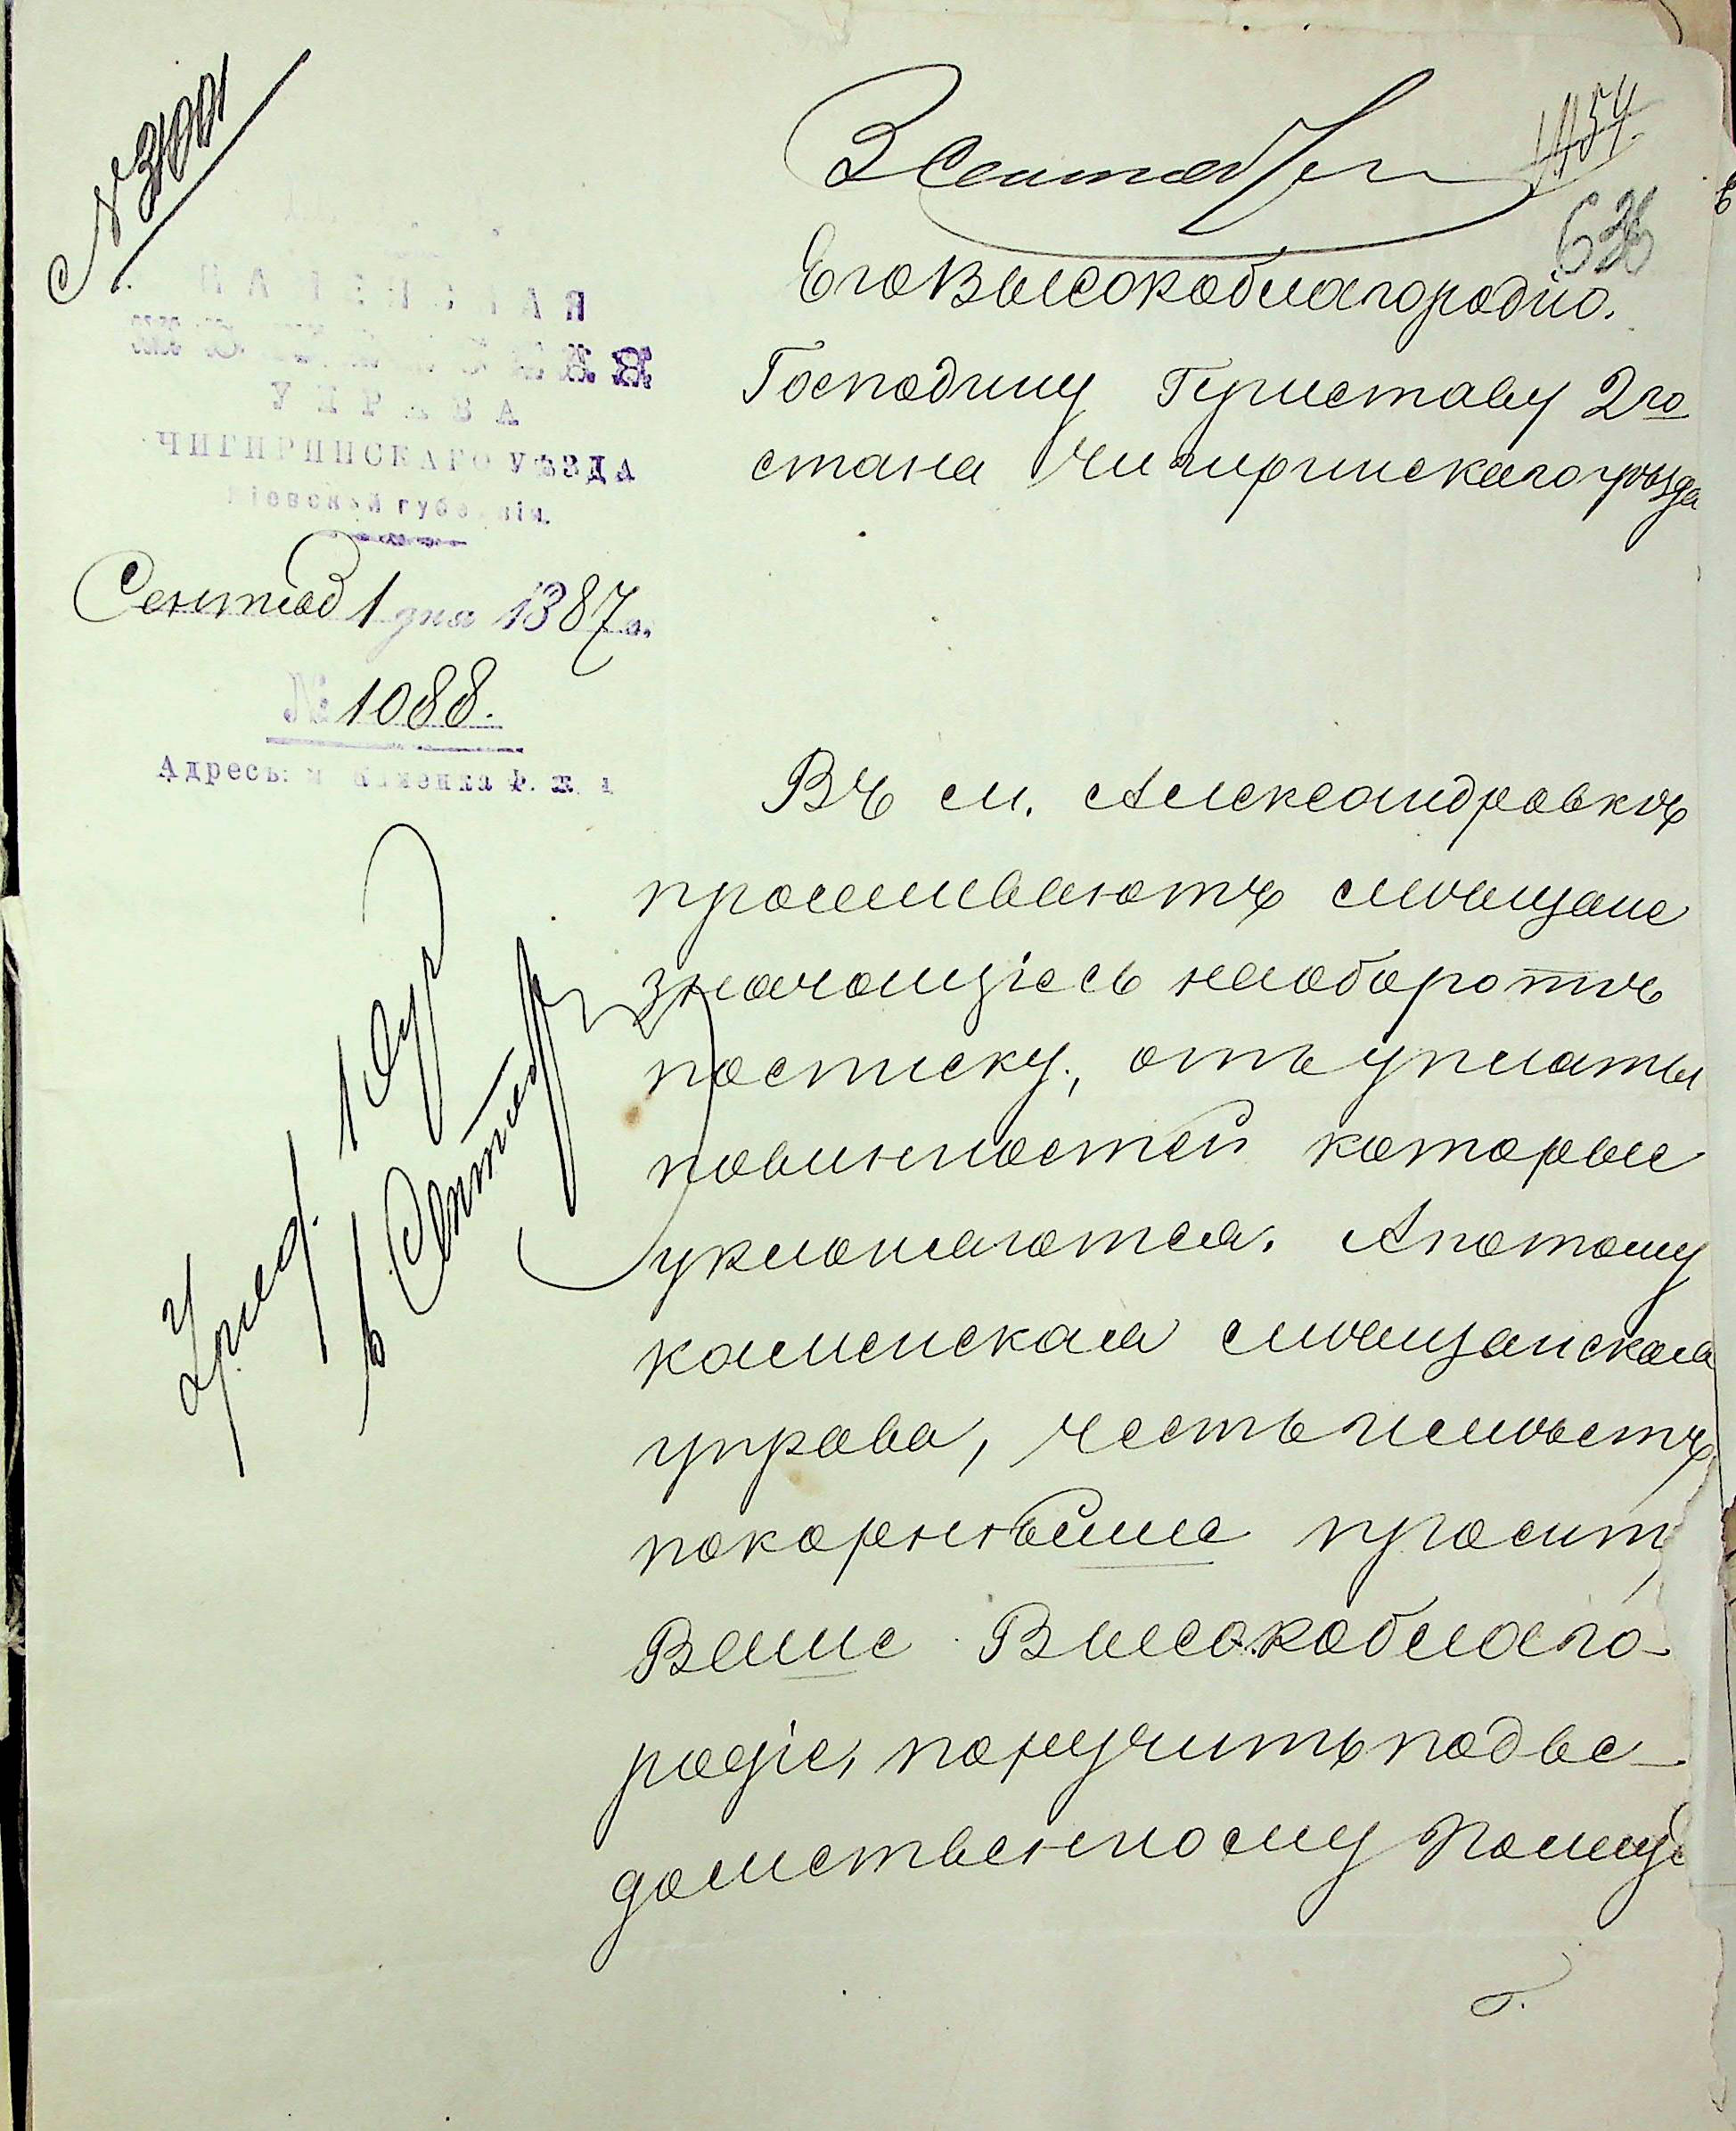 3 Сентября
1154
Его Высокоблагородію.
Господину Приставу 2го
стана Чигиринскаго уѣзда
УПРАВА
ЧИГИРИНСКАГО УѢЗДА
Кіевской губерніи.
Сентяб 1 дня 1887 г.
№ 1088.
Адресъ: м Каменка Ф. ж. д
Въ м. Александровкѣ
проживаютъ мѣщане
значащіесь наоборотѣ
посписку, отъ уплаты
повинностей которые
уклоняются. Апотому
каменская мѣщанская
управа, честь имѣетъ
покорнѣйше просит
Ваше Высокоблаго-
родіе, поручить подве-
домственному Полиц
Уряд. 1 Окр
6 Сентяб